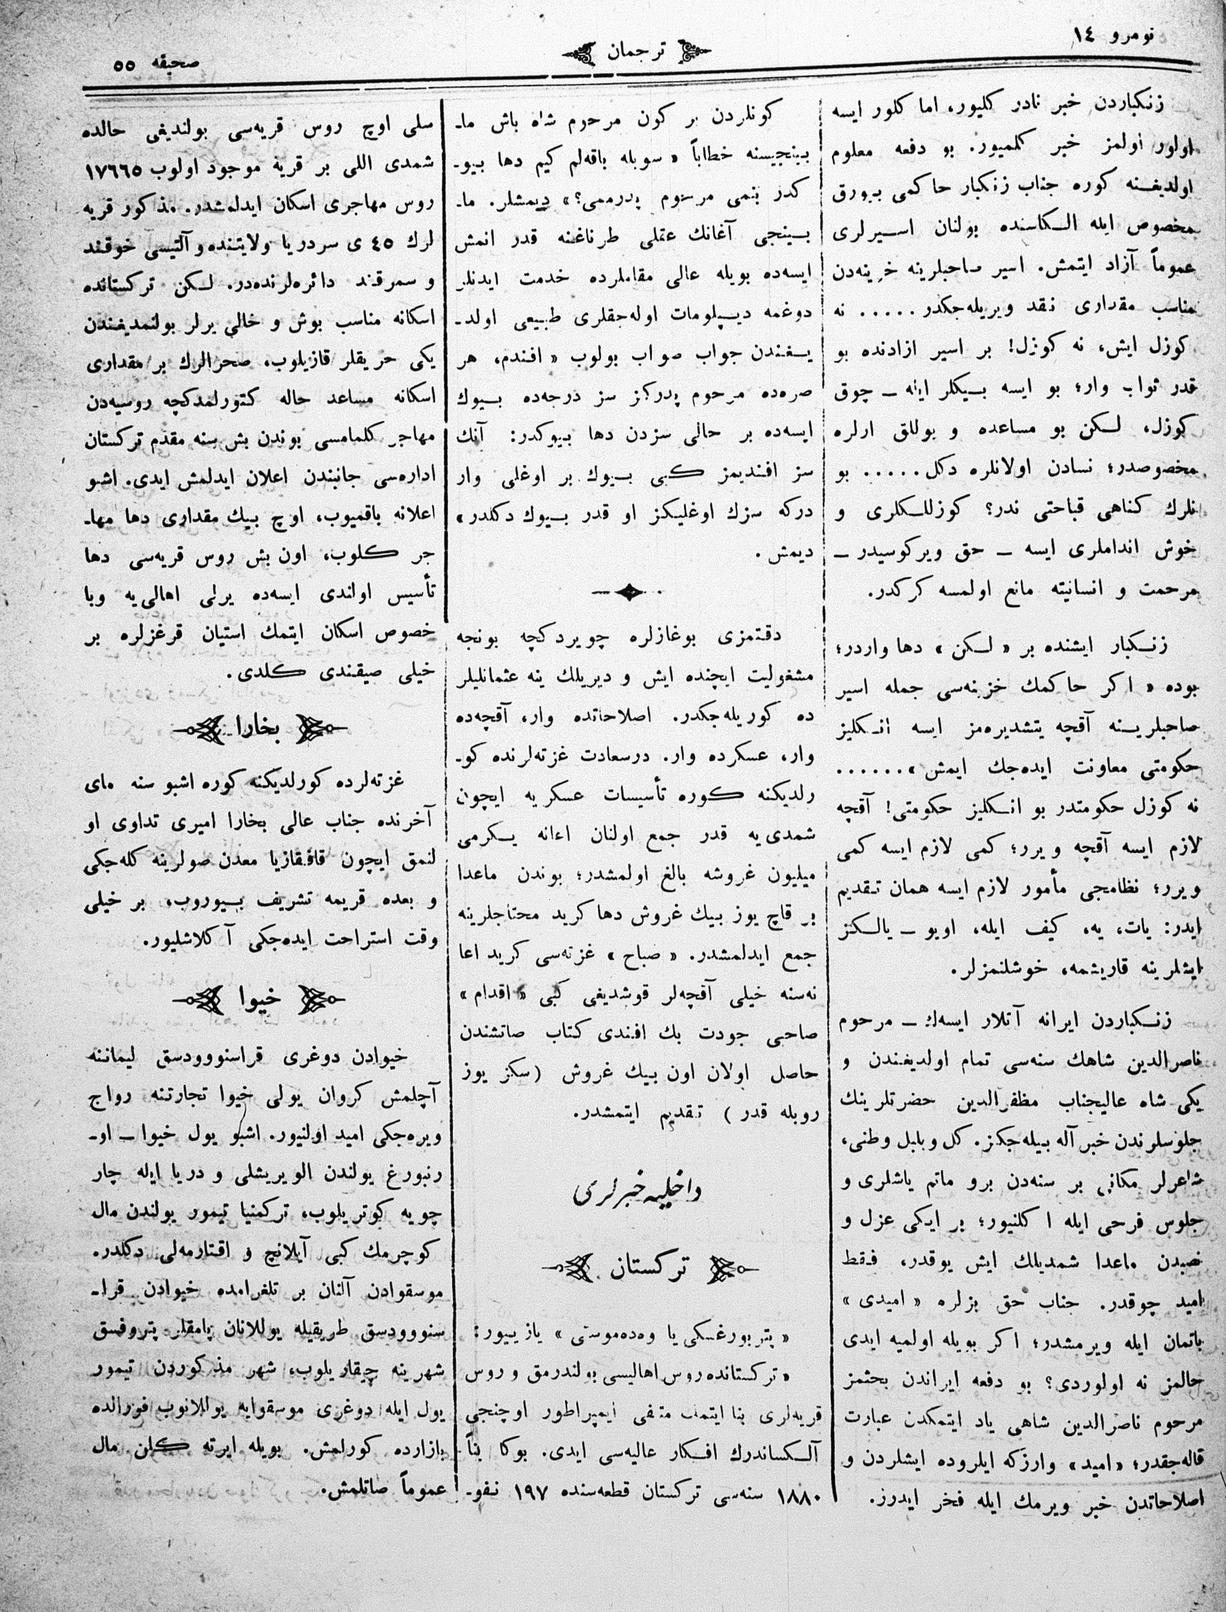 نومرو ١٤
ترجمان
صحیفه ٥٥
زنكباردن خبر نادر كلیور، اما كلور ایسه
اولور اولمز خبر كلمیور. بو دفعه معلوم
اولدیغنه كوره جناب زنكبار حاكمی بیورق
مخصوص ایله الكاسنده بولنان اسیرلری
عموماً آزاد ایتمش. اسیر صاحبلرینه خزینه‌دن
مناسب مقداری نقد ویریله‌جكدر..... نه
كوزل ایش، نه كوزل! بر اسیر ازادنده بو
قدر ثواب وار؛ بو ایسه بیكلر ایله — چوق
كوزل، لكن بو مساعده و بوللق ارلره
مخصوصدر؛ نسادن اولانلره دكل..... بو
نلرك كناهی قباحتی ندر؟ كوزللكلری و
خوش انداملری ایسه — حق ویركوسیدر —
مرحمت و انسانیته مانع اولمسه كركدر.
زنكبار ایشنده بر «لكن» دها واردر؛
بوده «اكر حاكمك خزینه‌سی جمله اسیر
صاحبلرینه آقچه یتشدیره‌مز ایسه انكلیز
حكومتی معاونت ایده‌جك ایمش»......
نه كوزل حكومتدر بو انكلیز حكومتی! آقچه
لازم ایسه آقچه ویرر؛ كمی لازم ایسه كمی
ویرر؛ نظامجی مأمور لازم ایسه همان تقدیم
ایدر: یات، یه، كیف ایله، اویو — یالكز
ایشلرینه قاریشمه، خوشلنمزلر.
زنكباردن ایرانه آتلار ایسه‌ك — مرحوم
ناصرالدین شاهك سنه‌سی تمام اولدیغندن و
یكی شاه عالیجناب مظفرالدین حضرتلرینك
جلوسلرندن خبر آله بیله‌جكز. كل و بلبل وطنی،
شاعرلر مكانی بر سنه‌دن برو ماتم یاشلری و
جلوس فرحی ایله اكلنیور؛ بر ایكی عزل و
نصبدن ماعدا شمدیلك ایش یوقدر، فقط
امید چوقدر. جناب حق بزلره «امیدی»
باتمان ایله ویرمشدر؛ اكر بویله اولمیه ایدی
حالمز نه اولوردی؟ بو دفعه ایراندن بحثمز
مرحوم ناصرالدین شاهی یاد ایتمكدن عبارت
قاله‌جقدر؛ «امید» وارزكه ایلروده ایشلردن و
اصلاحاتدن خبر ویرمك ایله فخر ایدرز.
كونلردن بر كون مرحوم شاه باش ما-
بینجیسنه خطاباً «سویله باقه‌لم كیم دها بیو-
كدر بنمی مرحوم پدرممی؟» دیمشلر. ما-
بینجی آغانك عقلی طرناغنه قدر انمش
ایسه‌ده بویله عالی مقاملرده خدمت ایدنلر
دوغمه دیپلومات اوله‌جقلری طبیعی اولد-
یغندن جواب صواب بولوب «افندم، هر
صره‌ده مرحوم پدركز سز درجه‌ده بیوك
ایسه‌ده بر حالی سزدن دها بیوكدر: آنك
سز افندیمز كبی بیوك بر اوغلی وار
دركه سزك اوغلیكز او قدر بیوك دكلدر»
دیمش.
دقتمزی بوغازلره چویردكچه بونجه
مشغولیت ایچنده ایش و دیریلك ینه عثمانلیلر
ده كوریله‌جكدر. اصلاحاتده وار، آقچه‌ده
وار، عسكرده وار. درسعادت غزته‌لرنده كو-
رلدیكنه كوره تأسیسات عسكریه ایچون
شمدی‌یه قدر جمع اولنان اعانه یكرمی
میلیون غروشه بالغ اولمشدر؛ بوندن ماعدا
بر قاچ یوز بیك غروش دها كرید محتاجلرینه
جمع ایدلمشدر. «صباح» غزته‌سی كرید اعا
نه‌سنه خیلی آقچه‌لر قوشدیغی كبی «اقدام»
صاحبی جودت بك افندی كتاب صاتشندن
حاصل اولان اون بیك غروش (سكز یوز
روبله قدر) تقدیم ایتمشدر.
داخلیه خبرلری
تركستان
«پتربورغسكی یا وه‌ده‌موستی» یازییور:
«تركستانده روس اهالیسی بولندرمق و روس
قریه‌لری بنا ایتمك متفی ایمپراطور اوچنجی
آلكساندرك افكار عالیه‌سی ایدی. بوكا بناً
١٨٨٠ سنه‌سی تركستان قطعه‌سنده ١٩٧ نفو-
سلی اوچ روس قریه‌سی بولندیغی حالده
شمدی اللی بر قریه موجود اولوب ١٧٦٦٥
روس مهاجری اسكان ایدلمشدر. مذكور قریه
لرك ٤٥ ی سردریا ولایتنده و آلتیسی خوقند
و سمرقند دائره‌لرنده‌در. لكن تركستانده
اسكانه مناسب بوش و خالی یرلر بولنمدیغندن
یكی حریقلر قازیلوب، صحرالرك بر مقداری
اسكانه مساعد حاله كتورلمدكچه روسیه‌دن
مهاجر كلمامسی بوندن بش سنه مقدم تركستان
اداره‌سی جانبندن اعلان ایدلمش ایدی. اشبو
اعلانه باقمیوب، اوچ بیك مقداری دها مها-
جر كلوب، اون بش روس قریه‌سی دها
تأسیس اولندی ایسه‌ده یرلی اهالی‌یه وبا
خصوص اسكان ایتمك استیان قرغزلره بر
خیلی صیقندی كلدی.
بخارا
غزته‌لرده كورلدیكنه كوره اشبو سنه مای
آخرنده جناب عالی بخارا امیری تداوی او
لنمق ایچون قافقازیا معدن صولرینه كله‌جكی
و بعده قریمه تشریف بیوروب، بر خیلی
وقت استراحت ایده‌جكی آكلاشلیور.
خیوا
خیوادن دوغری قراسنووودسق لیماننه
آچلمش كروان یولی خیوا تجارتنه رواج
ویره‌جكی امید اولنیور. اشبو یول خیوا — او-
رنبورغ یولندن الویریشلی و دریا ایله چار
چویه كوتریلوب، تركمنیا تیمور یولندن مال
كوچرمك كبی آیلانچ و اقتارمه‌لی دكلدر.
موسقوادن آلنان بر تلغرامده خیوادن قرا-
سنووودسق طریقیله یوللانان پامقلر پتروفسق
شهرینه چیقاریلوب، شهر مذكوردن تیمور
یول ایله دوغری موسقوایه یوللانوب فورالده
بازارده كورلمش. بویله ایرته كلن مال
عموماً صاتلمش.